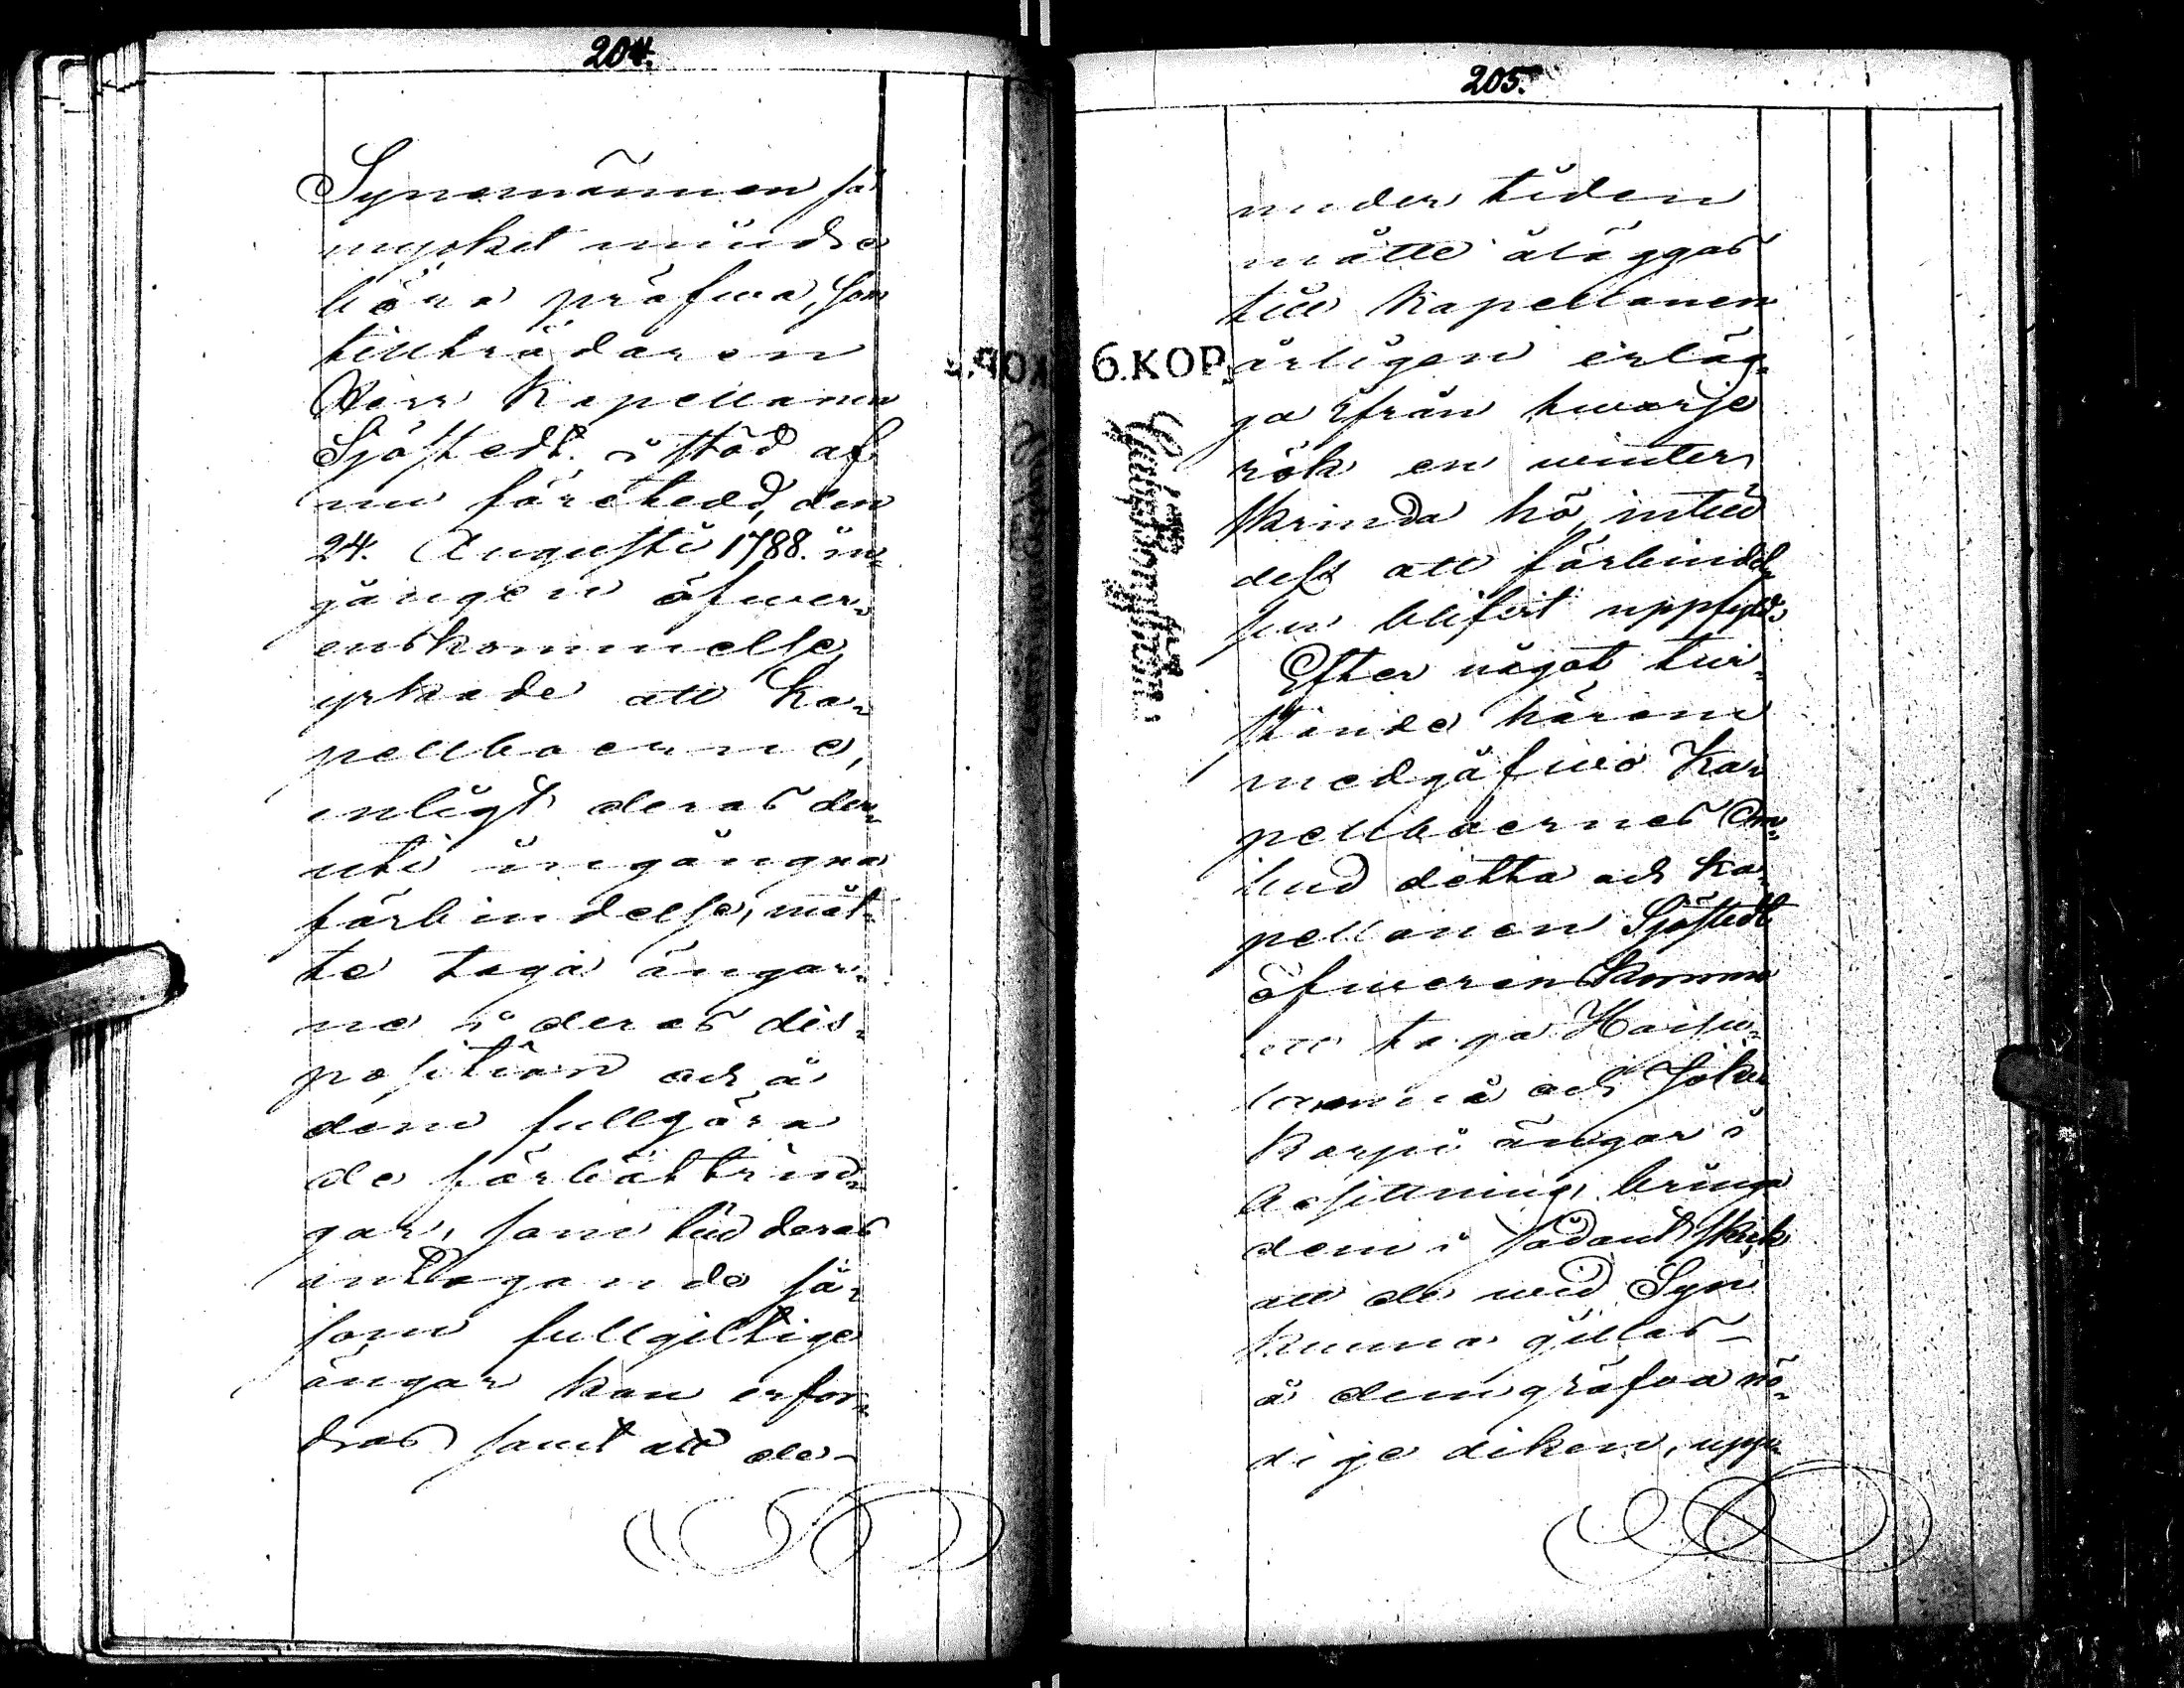 204.
Synemännen så
mycket mindre
böra pröfwa, som
tillträdaren
Herr Kapellanen
Sjöstedt i stöd af
nu företedd, den
24. Augusti 1788. in¬
gången öfwer¬
enskommelse
yrkade att Ka¬
pellboerne,
enligt deras der¬
uti ingångna
förbindelse, måt¬
te taga ängar¬
ne i deras dis¬
position och å
dem fullgöra
de förbättrin¬
gar, som till deras
intagande så¬
som fullgiltige
ängar kan erfor¬
dras samt att de
205.
under tiden
måtte åläggas
till Kapellanen
årligen erläg¬
ga ifrån hwarje
rök en winter
skrinda hö, intill
dess att förbindel¬
sen blifvit uppfyld.
Efter något twi¬
stande härom
medgåfwo Ka¬
pellboernes Om¬
bud detta och Ka¬
pellanen Sjöstedt
öfwerenskommo
att taga
och Joki
Korpi ängar i
besittning, bringa
dem i sådant skick
att de wid Syn
kunna gillas
å dem gräfva nö¬
dige diken, upp¬
6.KOP.